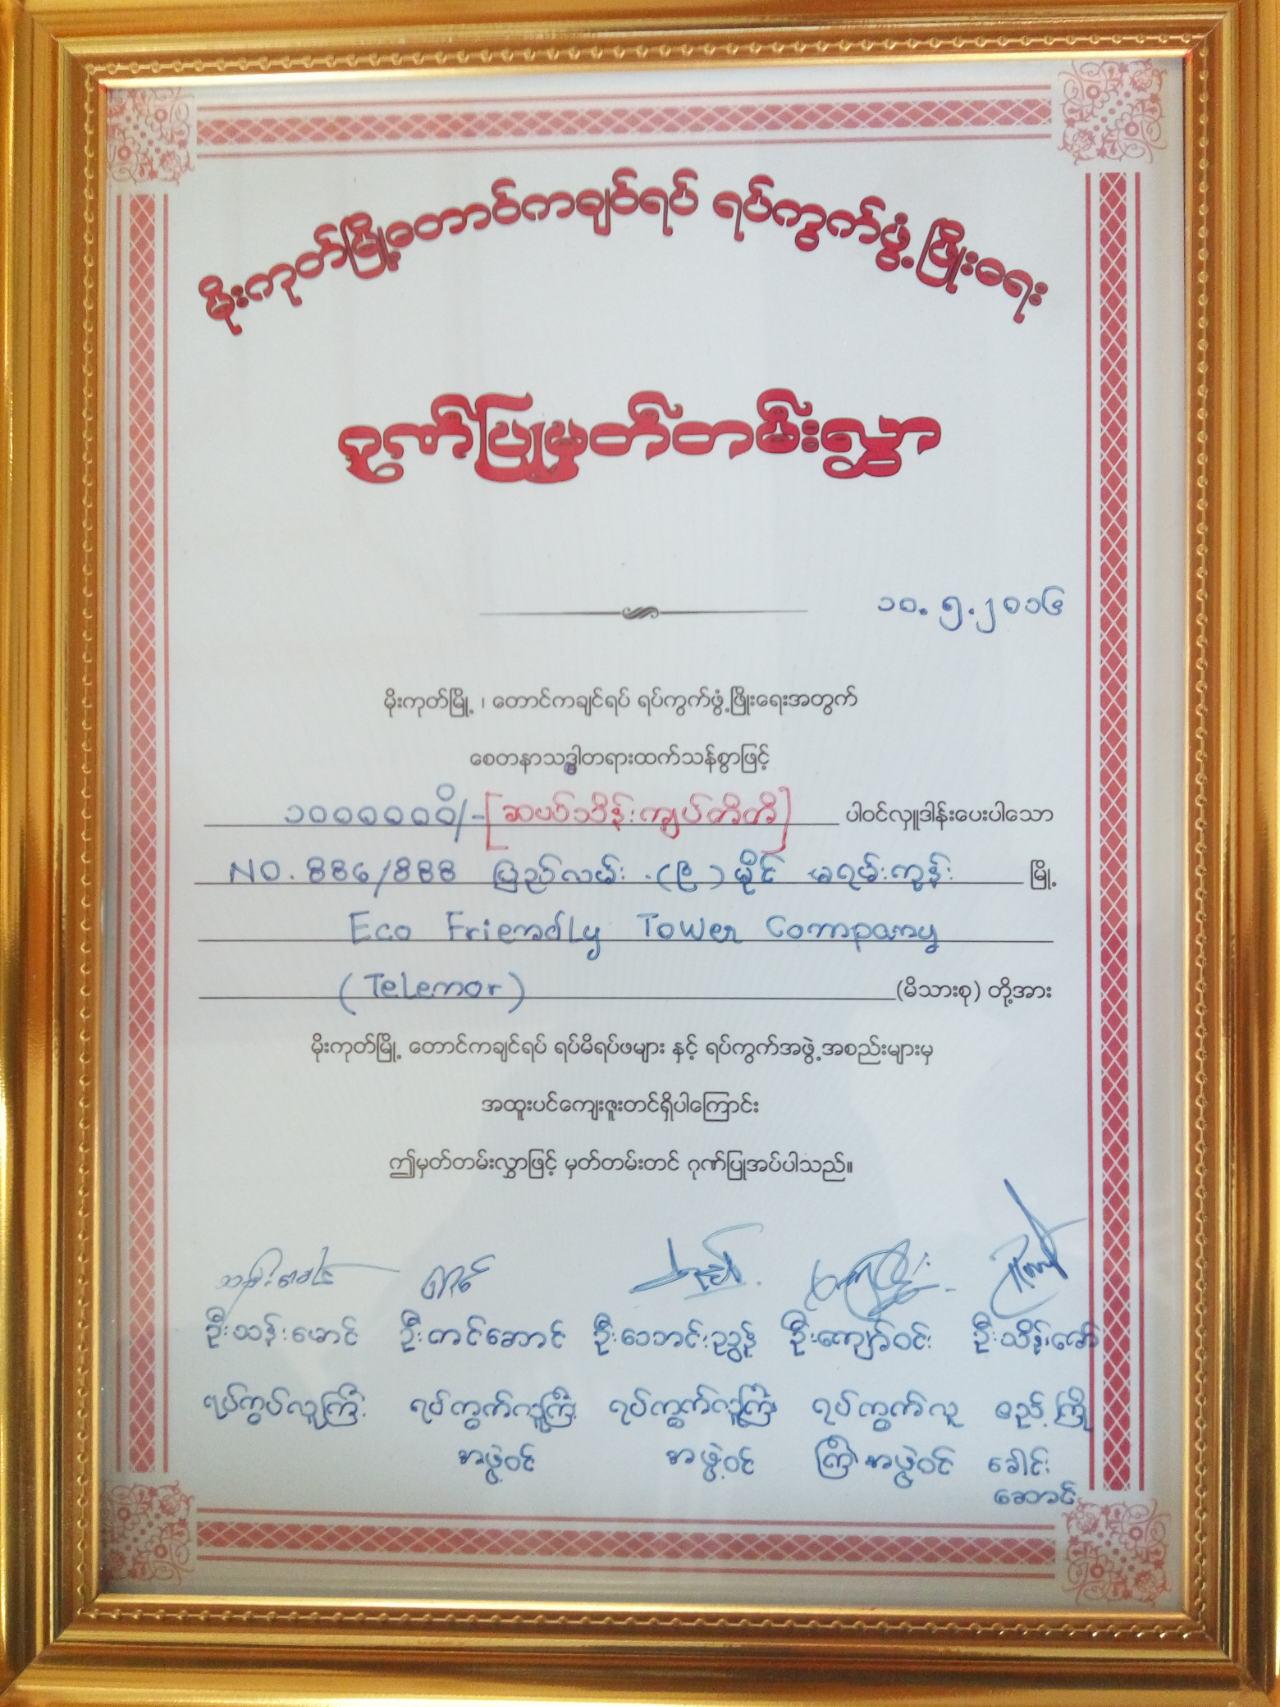 မိုးကုတ်မြို့တောင်ကချင်ရပ် ရပ်ကွက်ဖွံ့ဖြိုးရေး
ဂုဏ်ပြုမှတ်တမ်းလွှာ
၁၀.၅.၂၀၁၆
မိုးကုတ်မြို့၊ တောင်ကချင်ရပ် ရပ်ကွက်ဖွံ့ဖြိုးရေးအတွက်
စေတနာသဒ္ဓါတရားထက်သန်စွာဖြင့်
၁၀၀၀၀၀၀ိ/-[ဆယ်သိန်းကျပ်တိတိ] ပါဝင်လှူဒါန်းပေးပါသော
NO.886/888 ပြည်လမ်း (၉)မိုင် မရမ်းကုန်း မြို့
Eco Friendly Tower Company
(Telenor) (မိသားစု) တို့အား
မိုးကုတ်မြို့ တောင်ကချင်ရပ် ရပ်မိရပ်ဖများ နှင့် ရပ်ကွက်အဖွဲ့အစည်းများမှ
အထူးပင်ကျေးဇူးတင်ရှိပါကြောင်း
ဤမှတ်တမ်းလွှာဖြင့် မှတ်တမ်းတင် ဂုဏ်ပြုအပ်ပါသည်။
ဦးသန်းမောင် ဦးတင်အောင် ဦးဘေဘင်းဥညွန့် ဦးကျော်ဝင်း ဦးသိန်းဇော်
ရပ်ကွပ်လူကြီး ရပ်ကွက်လူကြီး ရပ်ကွက်လူကြီး ရပ်ကွက်လူ ဧည့်ကြို
အဖွဲ့ဝင် အဖွဲ့ဝင် ကြီးအဖွဲ့ဝင် ခေါင်း
ဆောင်